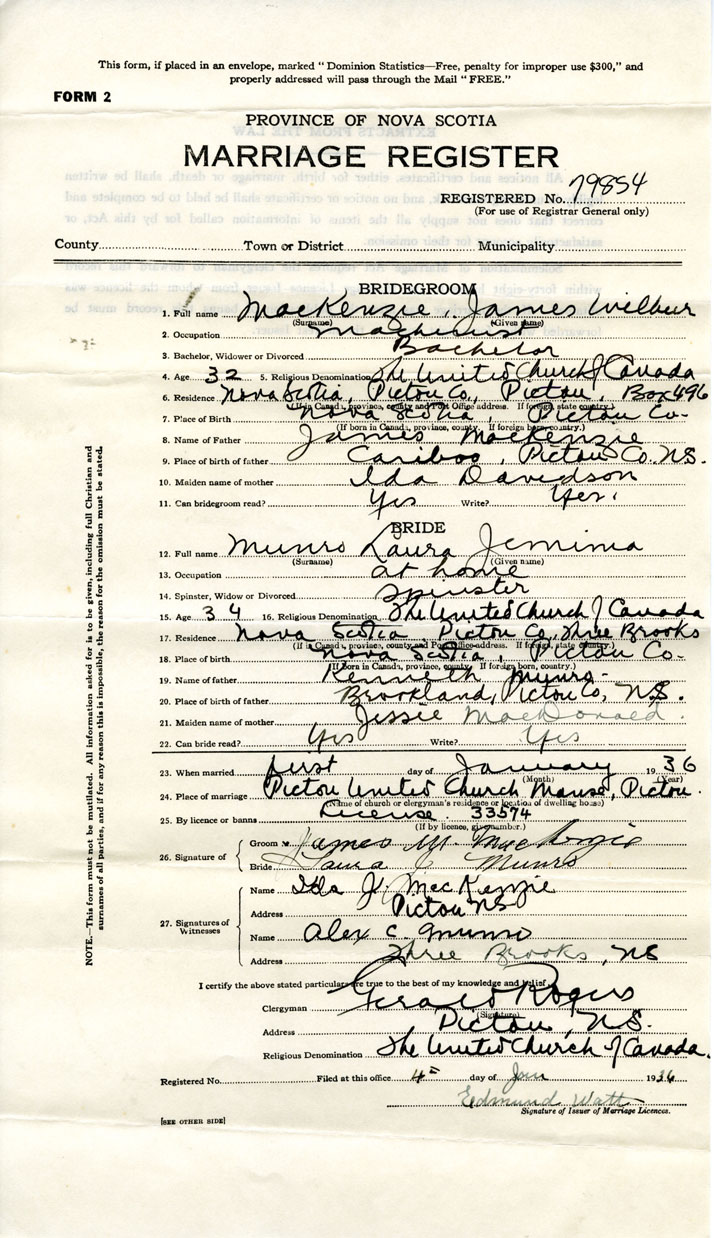 This form, if placed in an envelope, marked "Dominion Statistics—Free, penalty for improper use $300," and
properly addressed will pass through the Mail "FREE."
FORM 2
PROVINCE OF NOVA SCOTIA
MARRIAGE REGISTER
REGISTERED No. 79854
(For use of Registrar General only)
County Town or District Municipality
BRIDEGROOM
1. Full name MacKenzie, James Wilbur
(Surname) (Given name)
2. Occupation Machinist
3. Bachelor, Widower or Divorced Bachelor
4. Age 32 5. Religious Denomination The United Church of Canada
6. Residence Nova Scotia, Pictou Co., Pictou, Box 496
(If in Canada, province, county and Post Office address. If foreign, state country.)
7. Place of Birth Nova Scotia Pictou Co.
(If born in Canada, province, county. If foreign born, country.)
8. Name of Father James MacKenzie
9. Place of birth of father Cariboo, Pictou Co. N.S.
10. Maiden name of mother Ida Davidson
11. Can bridegroom read? Yes Write? Yes.
BRIDE
12. Full name Munro Laura Jemima
(Surname) (Given name)
13. Occupation at home
14. Spinster, Widow or Divorced Spinster
15. Age 34 16. Religious Denomination The United Church of Canada
17. Residence Nova Scotia Pictou Co, Three Brooks
(If in Canada, province, county and Post Office address. If foreign, state country.)
18. Place of birth Nova Scotia, Pictou Co.
(If born in Canada, province, county. If foreign born, country.)
19. Name of father Kenneth Munro.
20. Place of birth of father Brookland, Pictou Co, N.S.
21. Maiden name of mother Jessie MacDonald.
22. Can bride read? Yes Write? Yes
23. When married first day of January 1936
(Month) (Year)
24. Place of marriage Pictou United Church Manse, Pictou.
(Name of church or clergyman's residence or location of dwelling house)
25. By licence or banns License 33574
(If by licence, give number.)
26. Signature of Groom James W. MacKenzie
Bride Laura J. Munro
27. Signatures of Witnesses Name Ida J. MacKenzie
Address Pictou NS
Name Alex C. Munro
Address Three Brooks, NS
I certify the above stated particulars are true to the best of my knowledge and belief.
Clergyman Gerald Rogers
(Signature)
Address Pictou, N.S.
Religious Denomination The United Church of Canada.
Registered No. Filed at this office 4th day of Jan 1936
Edmund Watt
Signature of Issuer of Marriage Licences.
[SEE OTHER SIDE]
NOTE.—This form must not be mutilated. All information asked for is to be given, including full Christian and
surnames of all parties, and if for any reason this is impossible, the reason for the omission must be stated.